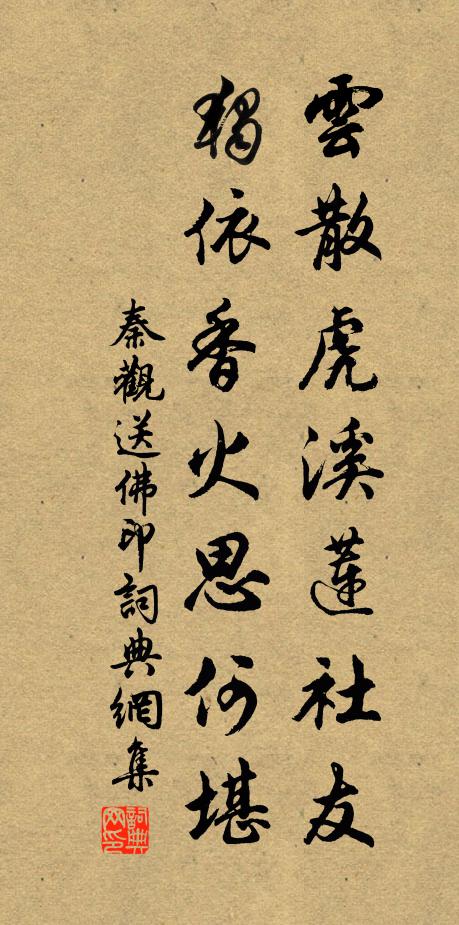 雲散虎溪蓮社友
獨依香火思何堪
秦觀送佛印詞典網集
詞典網印